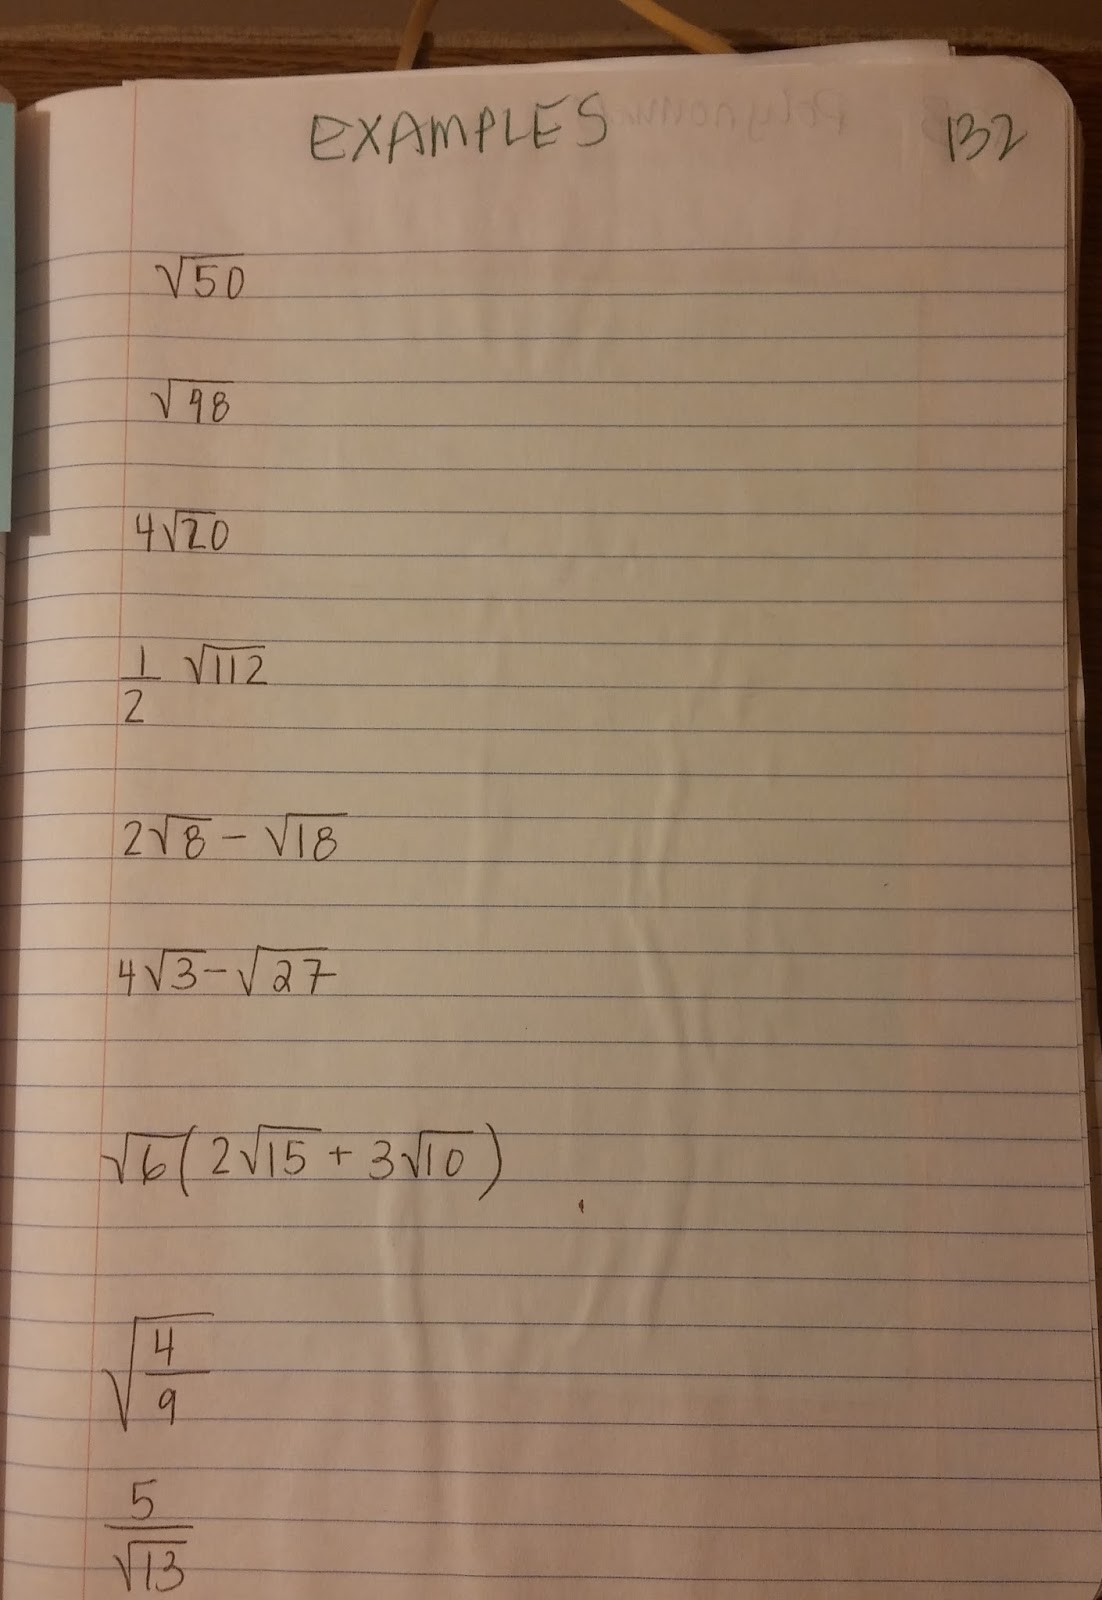 EXAMPLES 132
√50
√98
4√20
1/2 √112
2√8 - √18
4√3 - √27
√6(2√15 + 3√10)
√4/9
5/√13